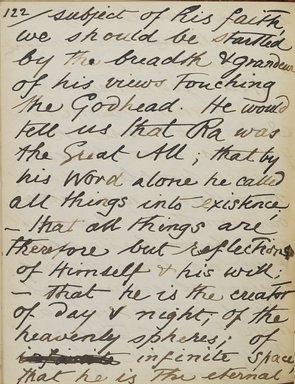 122/ subject of his faith,
we should be startled
by the breadth & grandeur
of his views touching
the Godhead. He would
tell us that Ra was
the Great All; that by
his Word alone he called
all things into existence,
- that all things are
therefore but reflections
of Himself & his will;
- that he is the creator
of Day & night, of the
heavenly spheres; of
infinite Space;
that he is the eternal